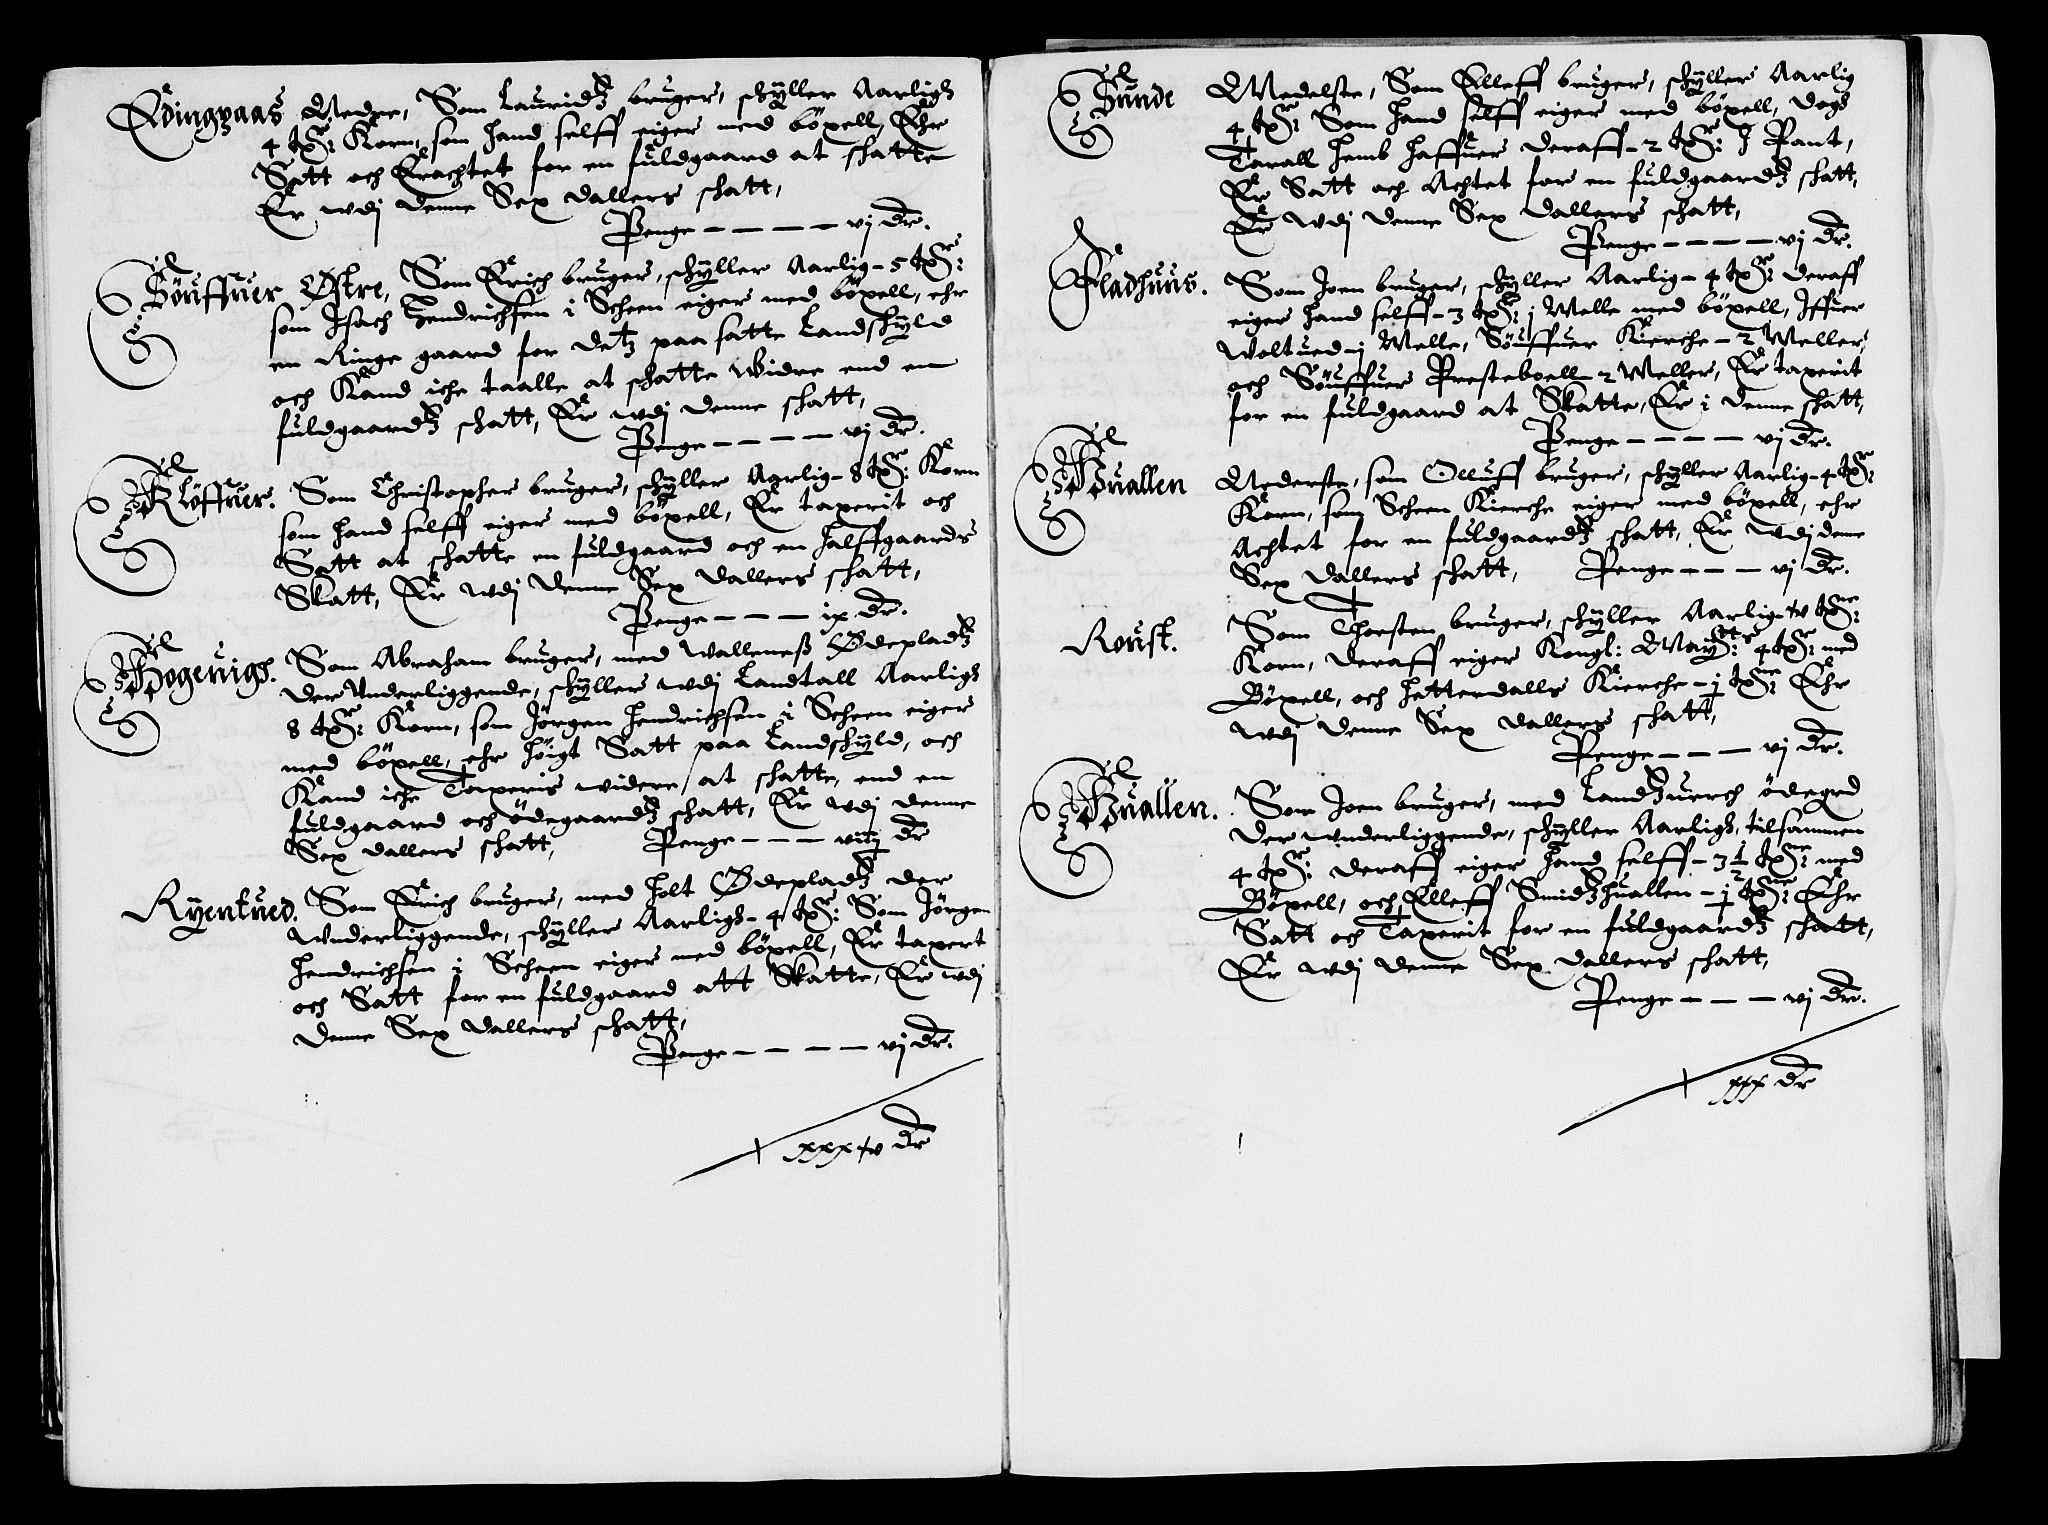 Edingaas Nedre, Som Lauridz bruger, schyller Aarligh
4 txr: Korn, som hand selff eiger med böxell, Ehr
Satt och Erachtet for en fuldgaard at schatte
Er udj denne Sex dallers schatt,
Penge – – – – vj dr.
Söuffuer Østre, Som Erich bruger, schyller Aarlig – 5 txr:
som Isach Hendrichsen i Scheen eiger med böxell, ehr
en Ringe gaard for detz paa satte Landschyld
och Kand iche taalle at schatte Widre end en
fuldgaardz schatt, Er udj denne schatt,
Penge – – – – vj dr.
Klöffuer. Som Christopher bruger, schyller Aarlig – 8 txr: Korn
som hand selff eiger med böxell, Er taxerit och
Satt at schatte en fuldgaard och en halffgaards
Skatt, Er wdj denne Sex dallers schatt,
Penge – – – ix dr.
Hogeuigh. Som Abraham bruger, med Walleneß Ødepladz
der Underliggende, schyller wdj Landtall Aarligh
8 txr: Korn, som Jörgen Hendrichsen i Scheen eiger
med böxell, ehr höigt Satt paa Landschyld, och
Kand iche Taxeris widere at schatte, end en
fuldgaard och ödegaardz schatt, Er wdj denne
Sex dallers schatt, Penge – – – viij dr
Ryentued. Som Erich bruger, med Holt Ødepladz der
Wnderliggende, schyller Aarligh – 4 txr: Som Jörgen
Hendrichsen i Scheen eiger med böxell, Er taxert
och Satt for en fuldgaard att Skatte, Er wdj
denne Sex dallers schatt,
Penge – – – – vj dr.
xxxv dr
Sunde Medelste, Som Elleff bruger, schyller Aarlig
4 txr: Som hand selff eiger med böxell, dogh
Tarall Hemb haffuer deraff – 2 txr: J Pant,
Er Satt och Achtet for en fuldgaardz schatt,
Er wdj denne Sex dallers schatt,
Penge – – – – vj dr.
Fladhuus. Som Joen bruger, schyller Aarlig – 4 txr: deraff
eiger hand selff – 3 txr: j Melle med böxell, Iffuer
Woltued – j Melle, Söuffuer Kierche – 2 Meller,
och Söuffuer Presteboell – 2 Meller, Er taxerit
for en fuldgaard at Skatte, Er i denne schatt,
Penge – – – – vj dr.
Huallen Nederste, som Olluff bruger, schyller Aarlig – 4 txr:
Korn, som Scheen Kierche eiger med böxell, ehr
Achtet for en fuldgaardz schatt, Er wdj denne
Sex dallers schatt, Penge – – – vj dr.
Roust. Som Thorsten bruger, schyller Aarlig – v txr:
Korn, deraff eiger Kongl: Maytt: 4 txr: med
Böxell, och Hetterdalls Kierche – j txr: Ehr
wdj denne Sex dallers schatt,
Penge – – – vj dr.
Huallen. Som Joen bruger, med Landzuerch ödegrd
der wnderliggende, schyller Aarligh, tilsammen
4 txr: deraff eiger hand selff – 3 1/2 txr: med
Böxell, och Elleff Smidzhuallen – 1/2 txr: Ehr
Satt och Taxerit for en fuldgaardz schatt,
Er wdj denne Sex dallers schatt,
Penge – – – vj dr.
xxx dr